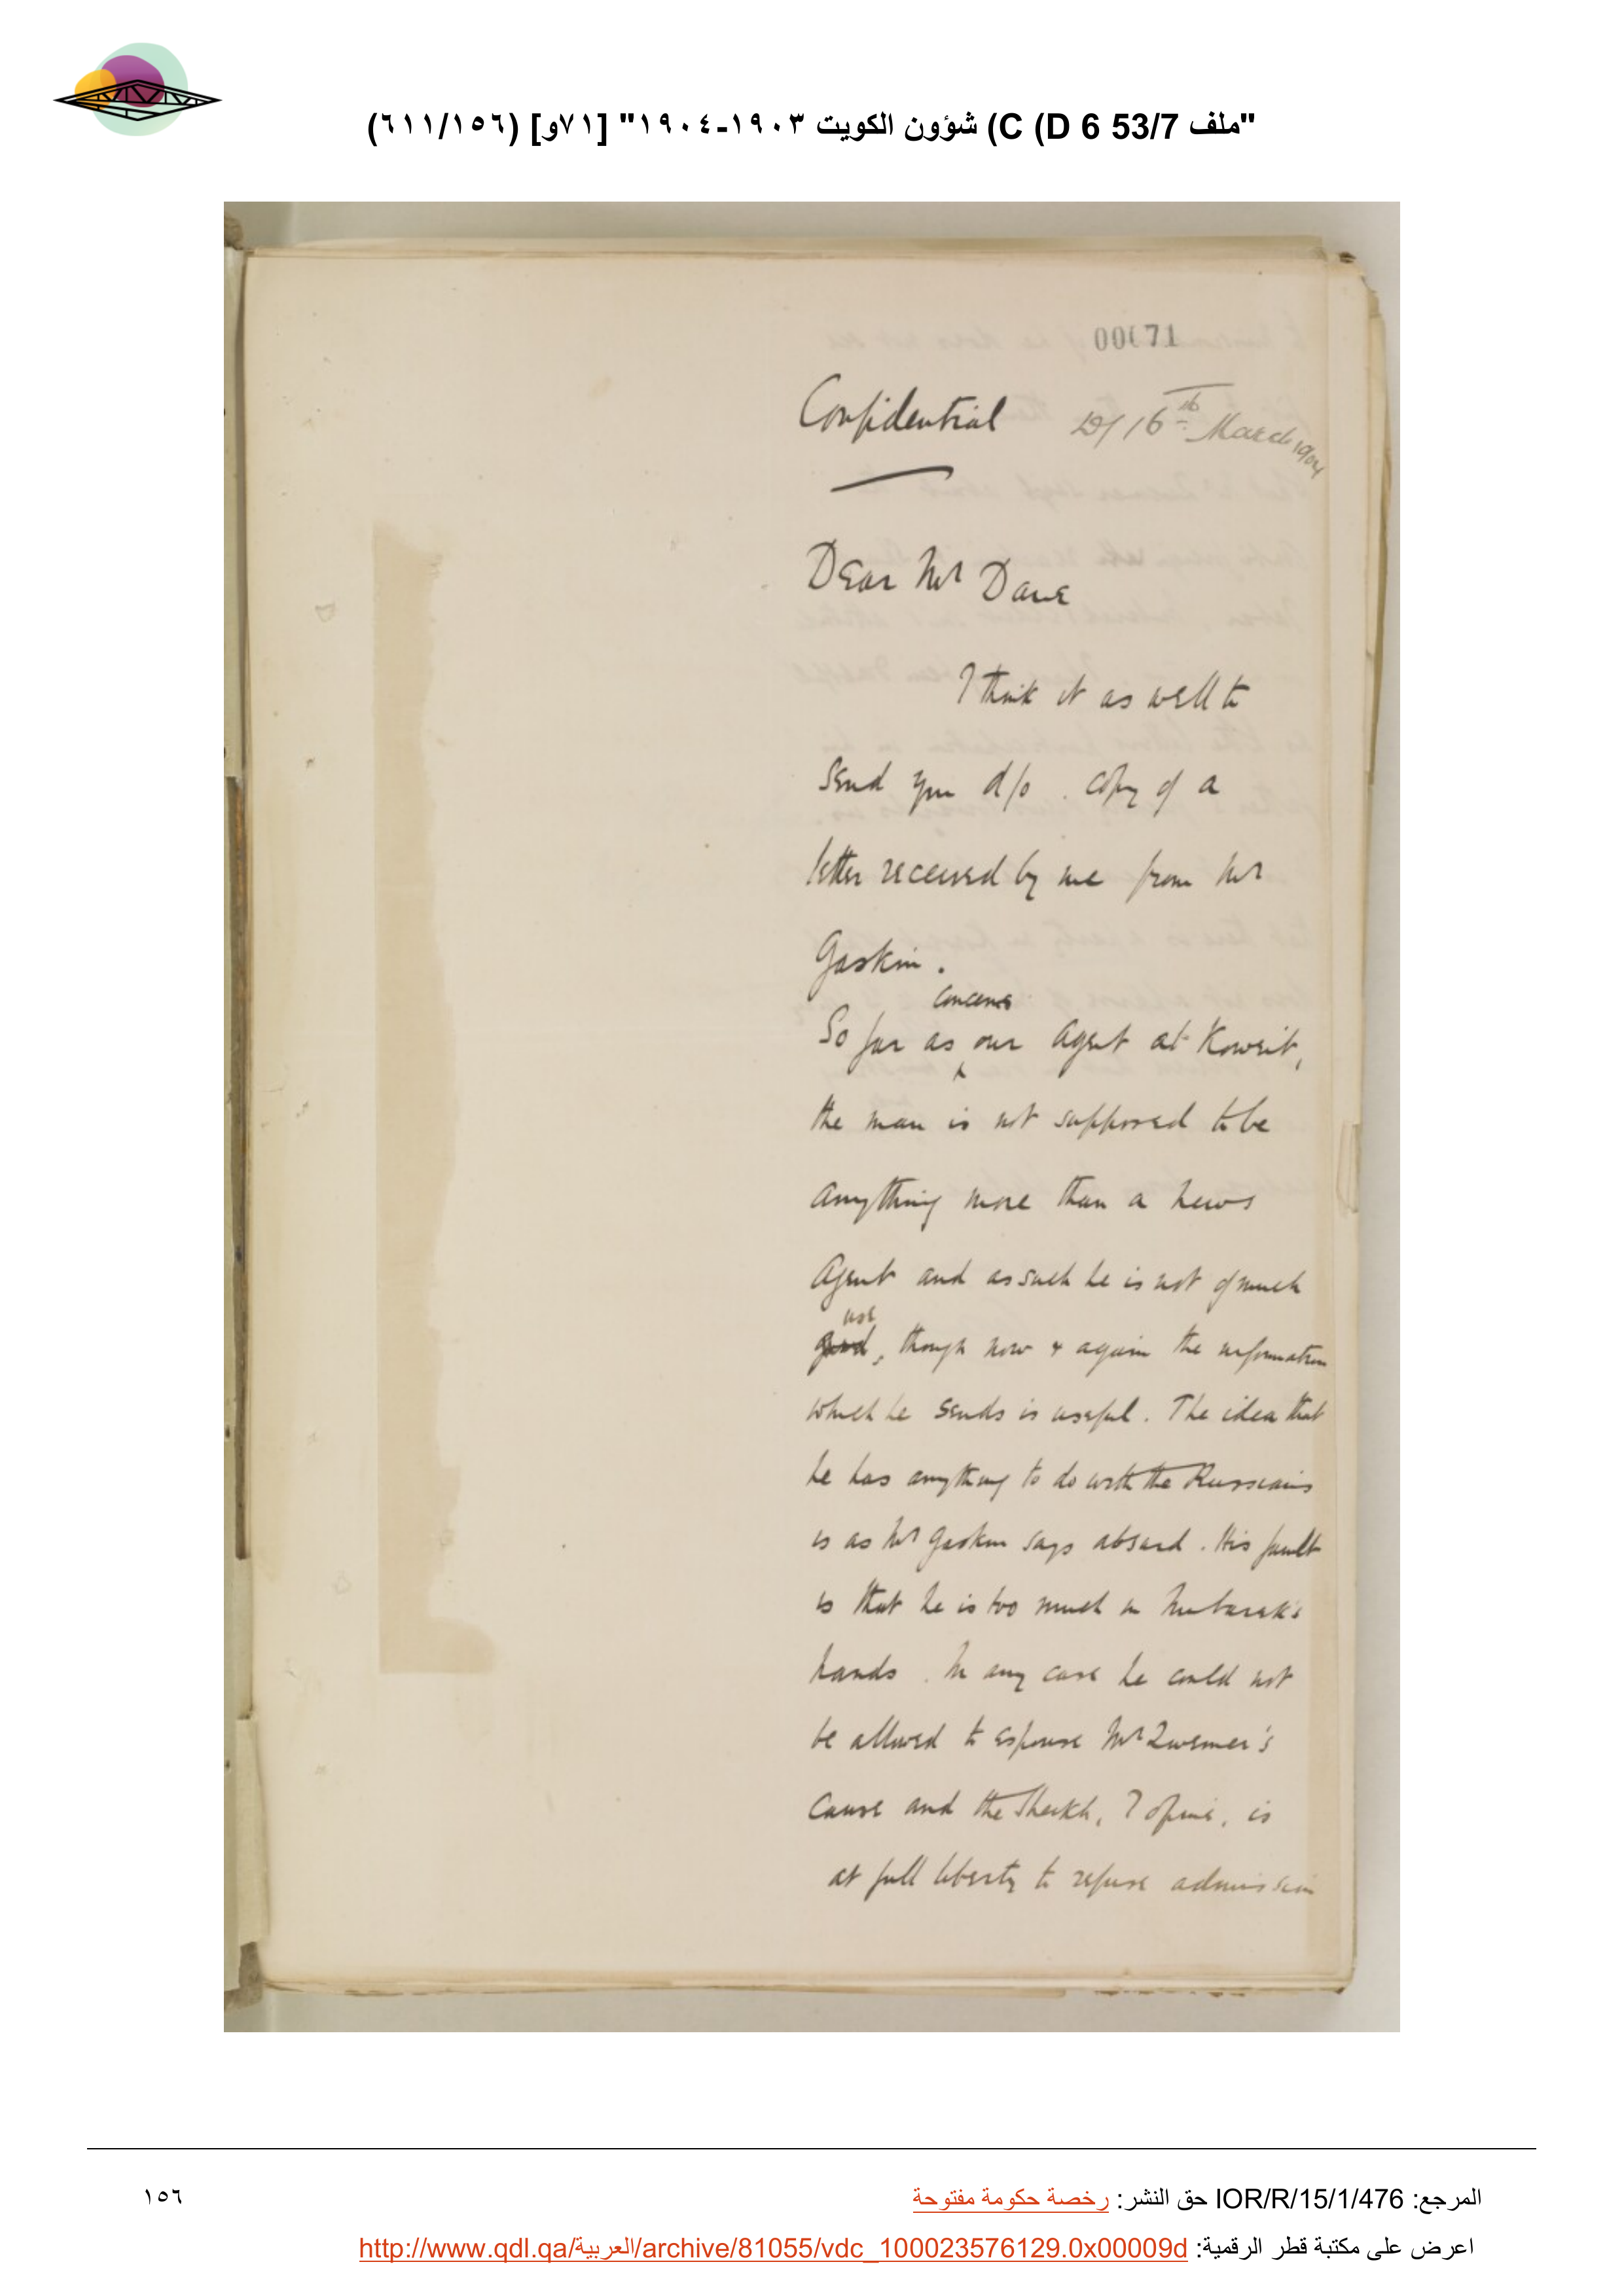 "ملف 53/7 C (D 6) شؤون الكويت ١٩٠٣-١٩٠٤" [٧١و] (٦١١/١٥٦)
00071
Confidential D/ 16th March 1904
Dear Mr Dane
I think it as well to
send you d/o. copy of a
letter received by me from Mr
Gaskin.
concerns
So far as our Agent at Koweit,
the man is not supposed to be
anything more than a news
Agent and as such he is not of much
use
good, though now & again the information
which he sends is useful. The idea that
he has anything to do with the Russians
is as Mr Gaskin says absurd. His fault
is that he is too much in Mubarak's
hands. In any case he could not
be allowed to espouse Mr Zwemer's
cause and the Sheikh, I opine, is
at full liberty to refuse admission
المرجع: IOR/R/15/1/476 حق النشر: رخصة حكومة مفتوحة
١٥٦
اعرض على مكتبة قطر الرقمية: http://www.qdl.qa/العربية/archive/81055/vdc_100023576129.0x00009d